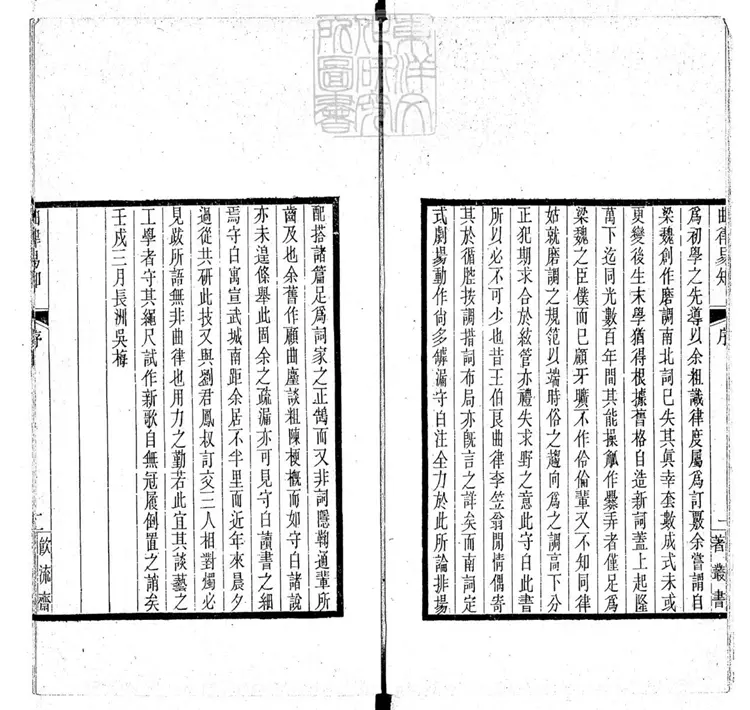 東洋文化研究所圖書
曲律易知
序
一
著叢書
爲初學之先導以余粗識律度屬爲訂覈余嘗謂自
梁魏創作磨調南北詞已失其眞幸套數成式未或
更變後生末學猶得根據舊格自造新詞蓋上起隆
萬下迄同光數百年間其能操觚作爨弄者僅足爲
梁魏之臣僕而已顧牙曠不作伶倫輩又不知同律
姑就磨調之規範以端時俗之趨向爲之調高下分
正犯期求合於絃管亦禮失求野之意此守白此書
所以必不可少也昔王伯良曲律李笠翁閒情偶寄
其於循腔按調措詞布局亦旣言之詳矣而南詞定
式劇場動作尙多罅漏守白注全力於此所論排場
配搭諸篇足爲詞家之正鵠而又非詞隱鞠通輩所
齒及也余舊作顧曲麈談粗陳梗概而如守白諸說
亦未遑條舉此固余之疏漏亦可見守白讀書之細
焉守白寓宣武城南距余居不半里而近年來晨夕
過從共研此技又與劉君鳳叔訂交三人相對燭必
見跋所語無非曲律也用力之勤若此宜其談藝之
工學者守其繩尺試作新歌自無冠履倒置之誚矣
壬戌三月長洲吳梅
曲律易知
序
二
飮流齋